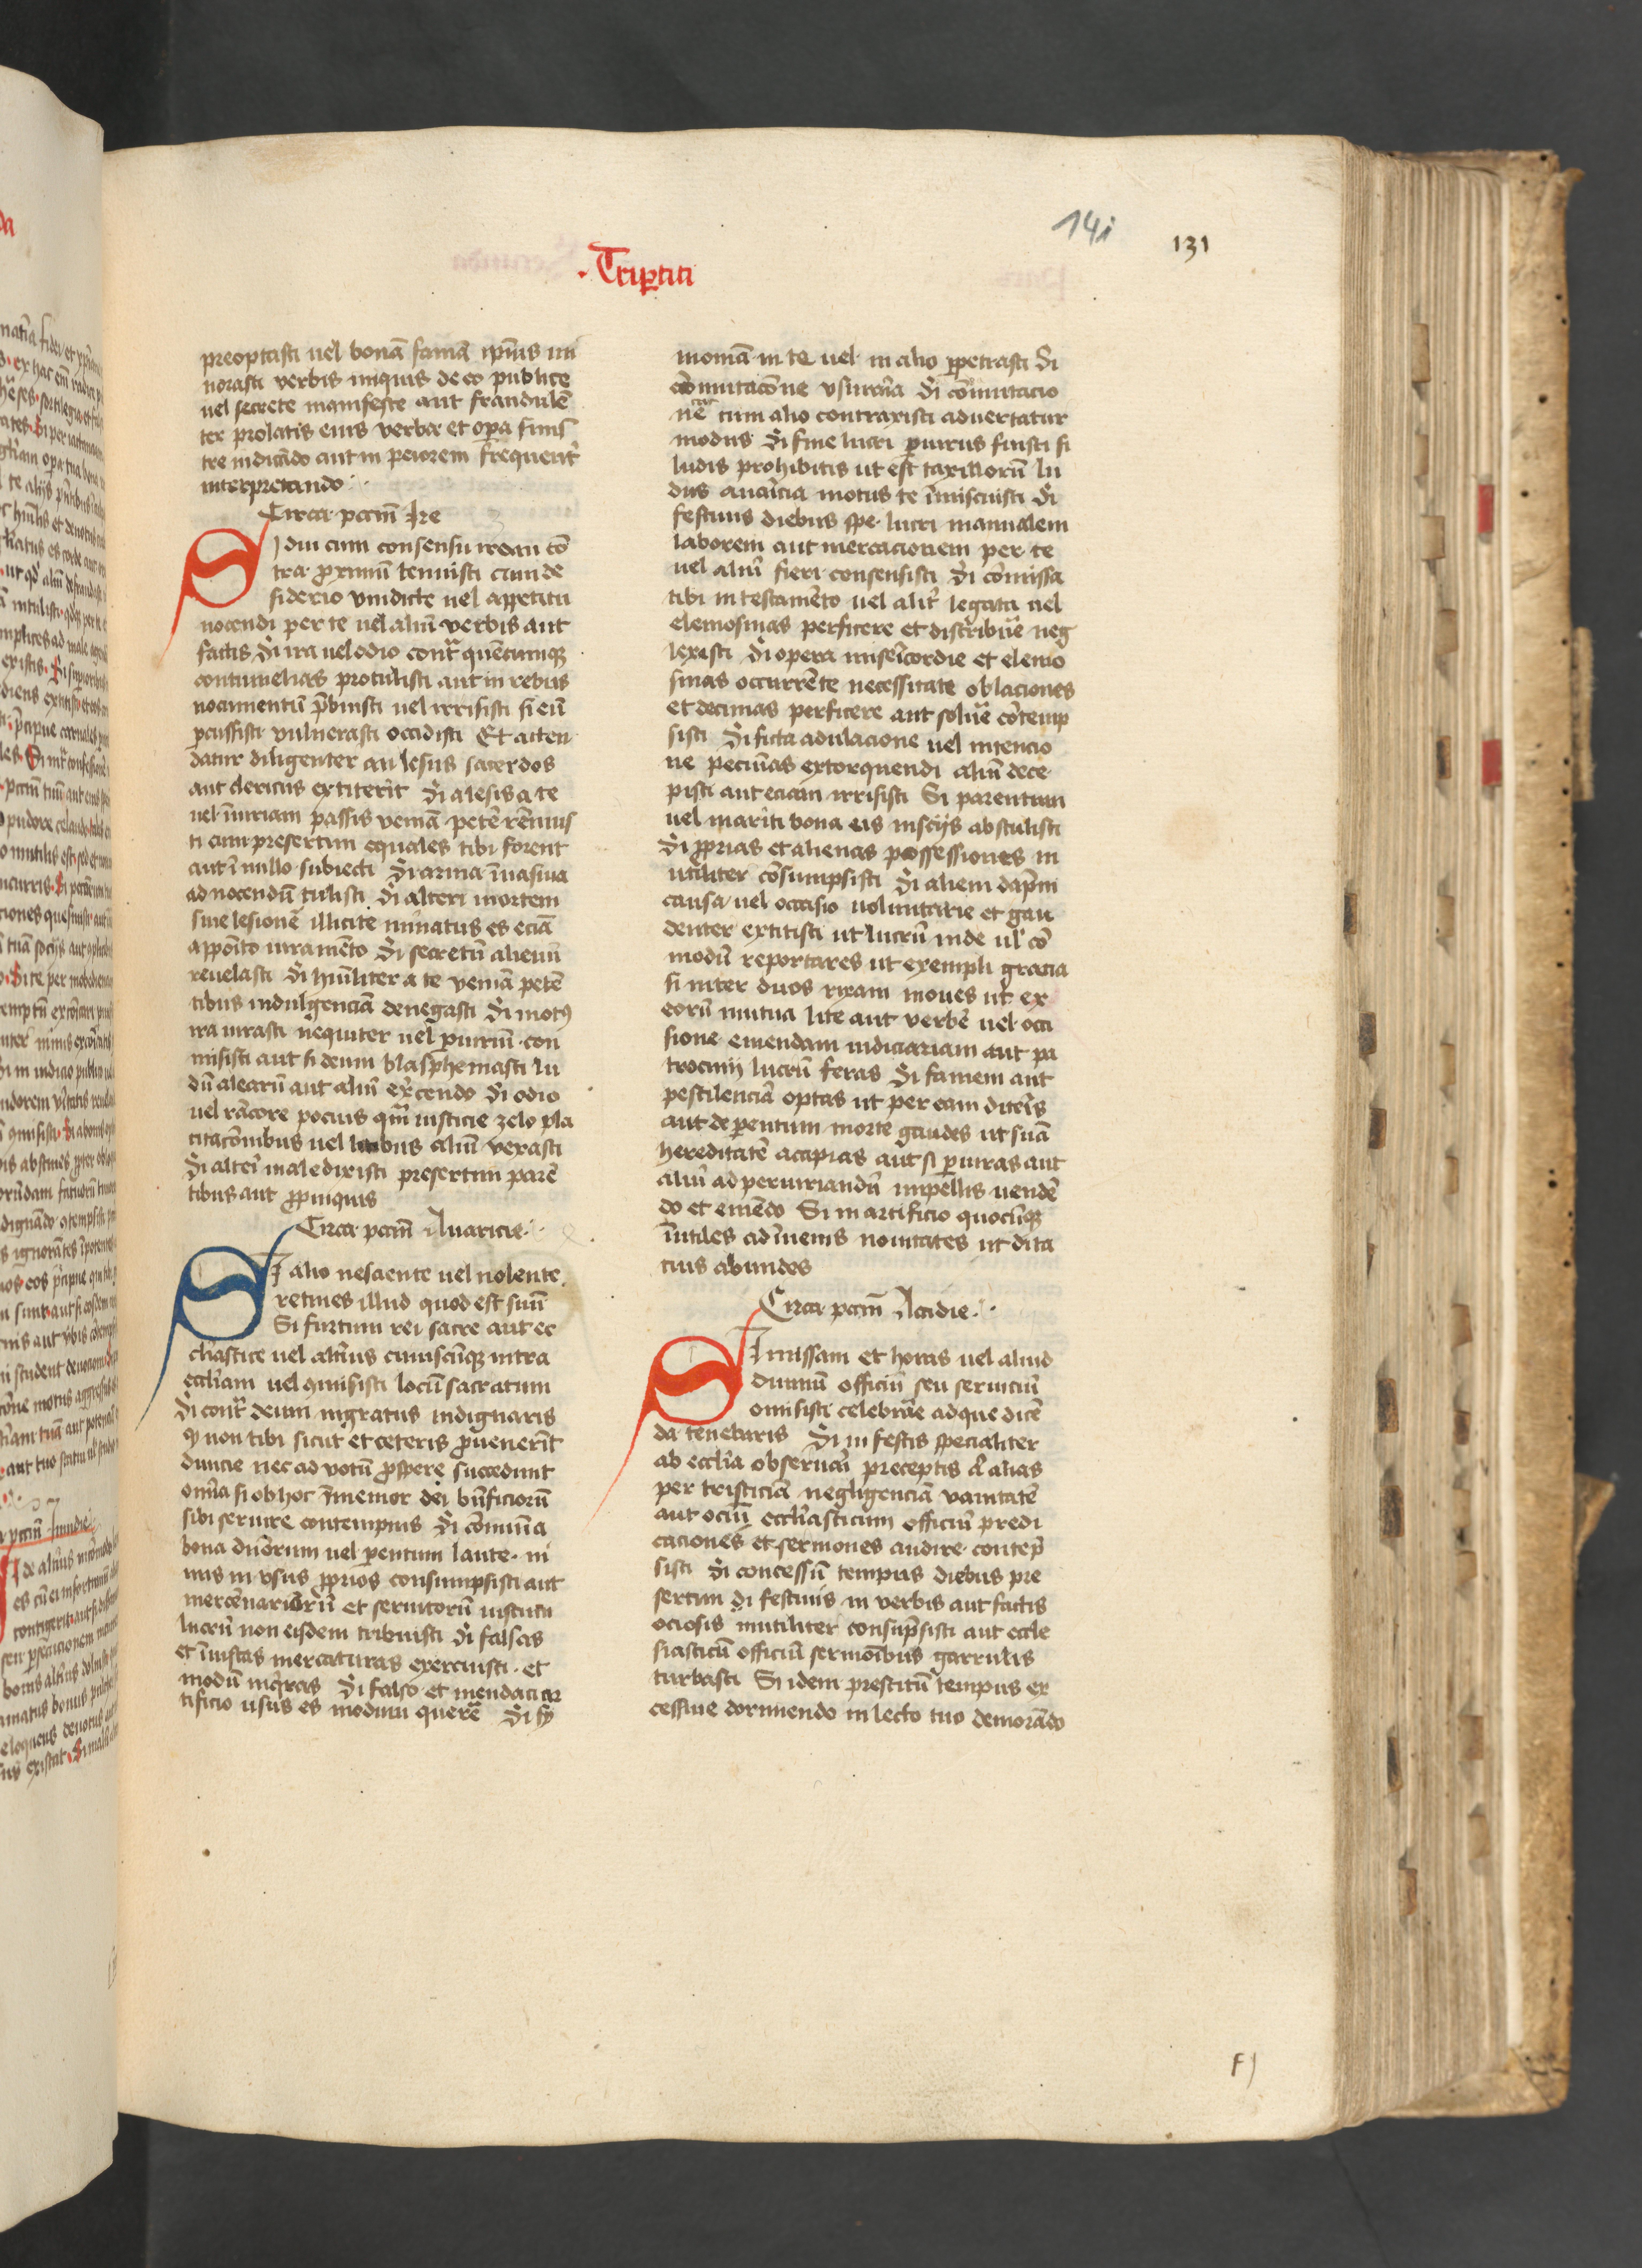 14i
131
Tripartiti
preoptasti uel bonā famā ipīus mi
norasti verbis iniquis de eo publice
uel secrete manifeste aut fraudulēn
ter prolatis eius verba et opera sinis
tre iudicādo aut in peiorem frequenter
interpretando
Circa pctm̄ Ire
Si diu cum consensu iram cō
tra proximū tenuisti cum de
siderio vindicte uel appetitu
nocendi per te uel aliū verbis aut
factis Si ira uel odio contra quēcumque
contumelias protulisti aut in rebus
nocumentū prebuisti uel irrisisti si eū
percussisti vulnerasti occidisti Et atten
datur diligenter an lesus sacerdos
aut clericus extiterit Si a lesis a te
uel iniuriam passis veniā petere rēnuis
ti cum presertim equales tibi forent
aut ī nullo subiecti Si arma īuasiua
ad nocendū tulisti Si alteri mortem
siue lesionē illicite minatus es eciā
apposito iuramēto Si secretū alienū
reuelasti Si humiliter a te veniā petē
tibus indulgenciā denegasti Si motus
ira iurasti nequiter uel periuriū con
misisti aut si deum blasphemasti lu
dū alearū aut aliū exercendo Si odio
uel rācore pocius quam iusticie zelo pla
citacōnibus uel litibus aliū vexasti
Si alteri maledixisti presertim parē
tibus aut propinquis
Circa pctm̄ Auaricie
Si alio nesciente uel nolente
retines illud quod est suū
Si furtum rei sacre aut ec
clesiastice uel alterius cuiuscūque intra
ecclesiam uel conmisisti locū sacratum
Si contra deum ingratus indignaris
quod non tibi sicut et ceteris prouenerīt
diuicie nec ad votū prospere succedunt
omnia si ob hoc īmemor dei beneficiorū
sibi seruire contempnis Si cōmunia
bona diuersorum uel parentum laute ni
mis in vsus proprios consumpsisti aut
mercēnariorū et seruitorū iustum
lucrū non eisdem tribuisti Si falsas
et īiustas mercaturas exercuisti et
modū inquiras Si falso et mendaci ar
tificio usus es modum querere Si sy
moniā in te uel in alio perpetrasti Si
cōmutacōne vsuraria Si cōmutacio
nē cum alio contraxisti aduertatur
modus Si sine lucri periurus fuisti si
ludis prohibitis ut est taxillorū lu
dus auaricia motus te īmiscuisti Si
festiuis diebus spe lucri manualem
laborem aut mercacionem per te
uel aliū fieri consensisti Si cōmissa
tibi in testamēto uel aliter legata uel
elemosinas perficere et distribuere neg
lexisti Si opera misericordie et elemo
sinas occurrēte necessitate oblaciones
et decimas perficere aut soluere cōtemp
sisti Si ficta adulacione uel intencio
ne pecunias extorquendi aliū dece
pisti aut eciam irrisisti Si parentum
uel mariti bona eis insciis abstulisti
Si proprias et alienas possessiones in
utiliter cōsumpsisti Si alieni dampni
causa uel occasio voluntarie et gau
denter extitisti ut lucrū inde uel cō
modū reportares ut exempli gracia
si inter duos rixam moues ut ex
eorū mutua lite aut verbere uel occi
sione emendam iudiciariam aut pa
trocinij lucrū feras Si famem aut
pestilenciā optas ut per eam diteris
aut de parentum morte gaudes ut suā
hereditatē accipias aut si periuras aut
aliū ad periurandū impellis uendē
do et emēdo Si in artificio quocūque
īutiles adīuenis nouitates ut dita
cius abundes
Circa pctm̄ Accidie
Si missam et horas uel aliud
diuinū officiū seu seruiciū
omisisti celebrare ad que dicē
da tenebaris Si in festis specialiter
ab ecclesia obseruari preceptis uel alias
per tristiciā negligenciā vanitatē
aut ociū ecclesiasticum officiū predi
caciones et sermones audire contemp
sisti Si concessū tempus diebus pre
sertim di festiuis in verbis aut factis
ociosis inutiliter consūpsisti aut eccle
siasticū officiū sermōibus garrulis
turbasti Si idem prestitū tempus ex
cessiue dormiendo in lecto tuo demorādo